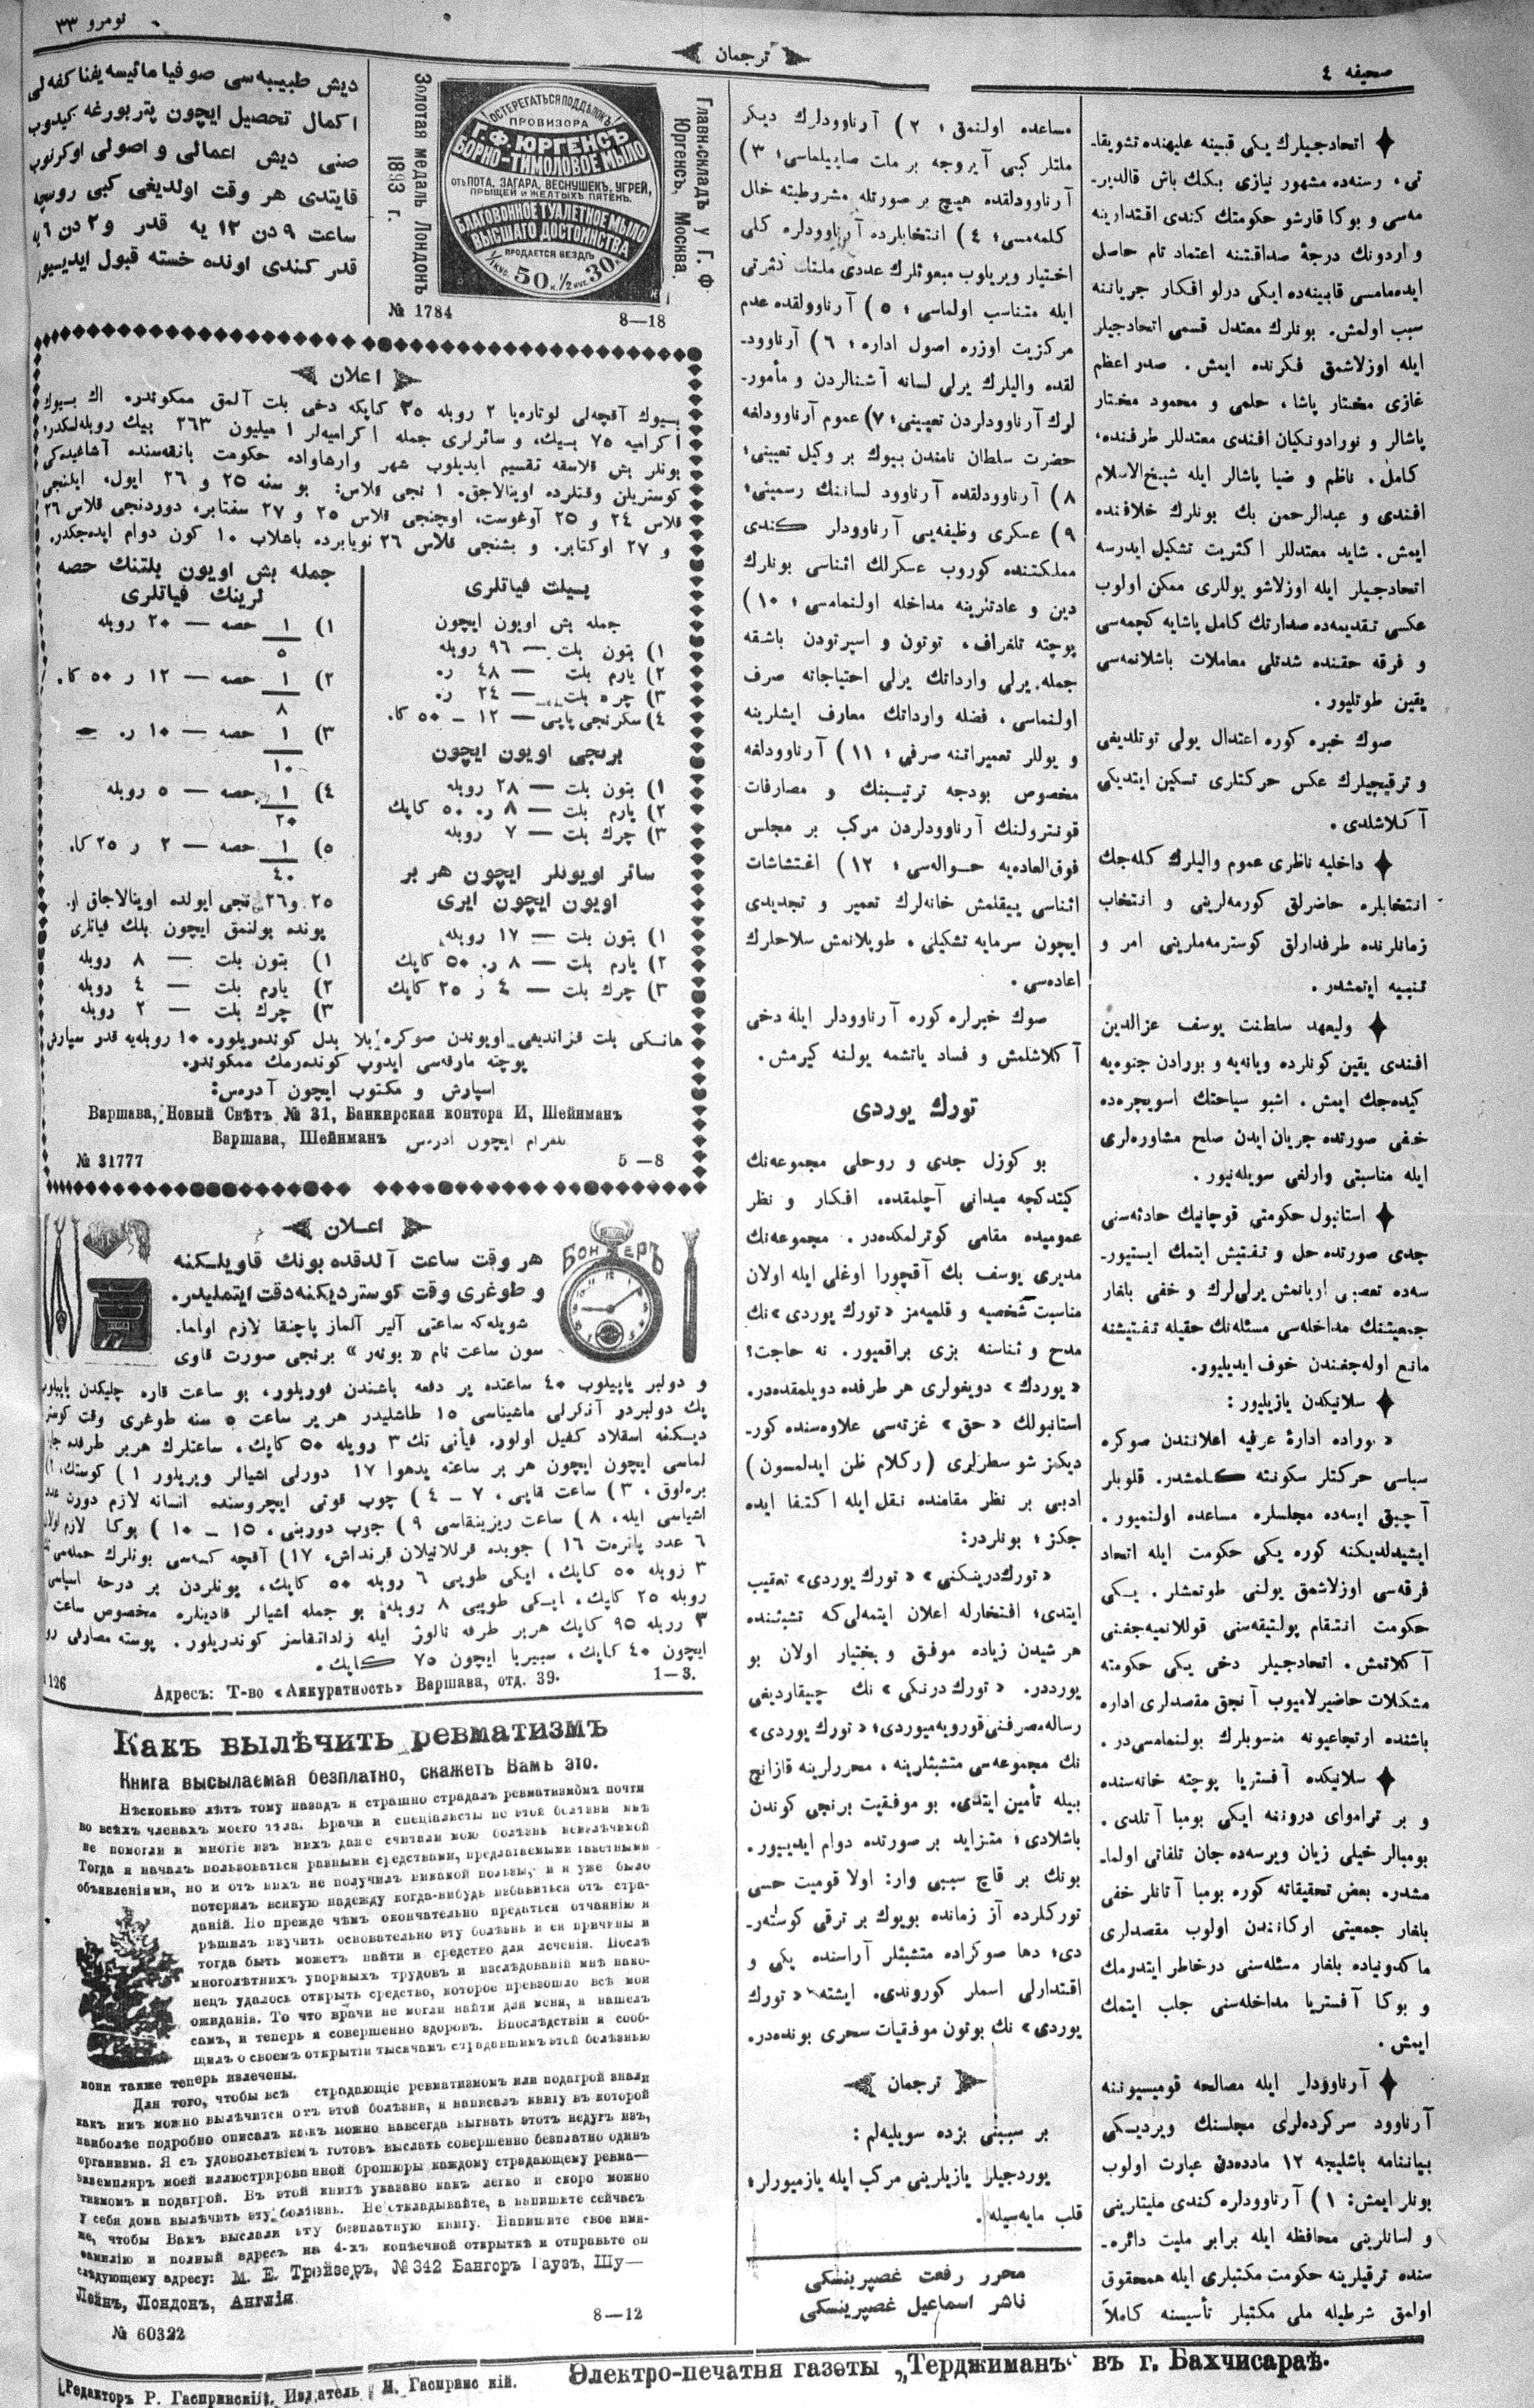 صحيفه ٤
ترجمان
نومرو ٣٣
اتحادجيلرك يكى قبينه عليهنده تشويقا-
تى، رسنه‌ده مشهور نيازى بكك باش قالدير-
مه‌سى و بوكا قارشو حكومتك كندى اقتدارينه
و اردونك درجهٔ صداقتنه اعتماد تام حاصل
ايده‌مامسى قابينه‌ده ايكى درلو افكار جرياننه
سبب اولمش. بونلرك معتدل قسمى اتحادجيلر
ايله اوزلاشمق فكرنده ايمش. صدر اعظم
غازى مختار پاشا، حلمى و محمود مختار
پاشالر و نورادونكيان افندى معتدللر طرفنده،
كامل، ناظم و ضيا پاشالر ايله شيخ‌الاسلام
افندى و عبدالرحمن بك بونلرك خلافنده
ايمش. شايد معتدللر اكثريت تشكيل ايدرسه
اتحادجيلر ايله اوزلاشو يوللرى ممكن اولوب
عكسى تقديمه‌ده صدارتك كامل پاشايه كچمه‌سى
و فرقه حقنده شدتلى معاملات باشلانمه‌سى
يقين طوتليور.
صوك خبره كوره اعتدال يولى توتلديغى
و ترقيجيلرك عكس حركتلرى تسكين ايتديكى
آكلاشلدى.
داخليه ناظرى عموم واليلرك كله‌جك
انتخابلره حاضرلق كورمه‌لرينى و انتخاب
زمانلرنده طرفدارلق كوسترمه‌ملرينى امر و
تنبيه ايتمشدر.
وليعهد سلطنت يوسف عزالدين
افندى يقين كونلرده ويانه‌يه و بورادن جنوه‌يه
كيده‌جك ايمش. اشبو سياحتك اسويچره‌ده
خفى صورتده جريان ايدن صلح مشاوره‌لرى
ايله مناسبتى وارلغى سويله‌نيور.
استانبول حكومتى قوچانيك حادثه‌سنى
جدى صورتده حل و تفتيش ايتمك ايستيور-
سه‌ده تعصبى اويانمش يرلى‌لرك و خفى بلغار
جمعيتنك مداخله‌سى مسئله‌نك حقيله تفتيشنه
مانع اوله‌جغندن خوف ايديليور.
سلانيكدن يازيليور:
«بوراده ادارهٔ عرفيه اعلانندن صوكره
سياسى حركتلر سكونته كلمشدر. قلوبلر
آچيق ايسه‌ده مجلسلره مساعده اولنميور.
ايشيدلديكنه كوره يكى حكومت ايله اتحاد
فرقه‌سى اوزلاشمق يولنى طوتمشلر. يكى
حكومت انتقام پولتيقه‌سنى قوللانميه‌جغنى
آكلاتمش. اتحادجيلر دخى يكى حكومته
مشكلات حاضيرلاميوب آنجق مقصدلرى اداره
باشنده ارتجاعيونه منسوبلرك بولنمامسى‌در.
سلانيكده آفستريا پوچته خانه‌سنده
و بر تراموای دروننه ايكى بومبا آتلدى.
بومبالر خيلى زيان ويرسه‌ده جان تلفاتى اولما-
مشدر. بعض تحقيقاته كوره بومبا آتانلر خفى
بلغار جمعيتى اركانندن اولوب مقصدلرى
ماكدونياده بلغار مسئله‌سنى درخاطر ايتدرمك
و بوكا آفستريا مداخله‌سنى جلب ايتمك
ايمش.
آرناوودلر ايله مصالحه قوميسيوننه
آرناوود سركرده‌لرى مجلسنك ويرديكى
بياننامه باشليجه ١٢ مادده‌دن عبارت اولوب
بونلر ايمش: ١) آرناوودلره كندى مليتلرينى
و لسانلرينى محافظه ايله برابر مليت دائره-
سنده ترقيلرينه حكومت مكتبلرى ايله همحقوق
اولمق شرطيله ملى مكتبلر تأسيسنه كاملاً
مساعده اولنمق؛ ٢) آرناوودلرك ديكر
ملتلر كبى آيروجه بر ملت صاييلماسى؛ ٣)
آرناوودلقده هيچ بر صورتله مشروطيته خلل
كلمه‌مسى؛ ٤) انتخابلرده آرناوودلره كلى
اختيار ويريلوب مبعوثلرك عددى ملتك كثرتى
ايله متناسب اولماسى؛ ٥) آرناوولقده عدم
مركزيت اوزره اصول اداره؛ ٦) آرناوود-
لقده واليلرك يرلى لسانه آشنالردن و مأمور-
لرك آرناوودلردن تعيينى؛ ٧) عموم آرناوودلغه
حضرت سلطان نامندن بيوك بر وكيل تعيينى؛
٨) آرناوودلقده آرناوود لساننك رسمينى؛
٩) عسكرى وظيفه‌يى آرناوودلر كندى
مملكتنده كوروب عسكرلك اثناسى بونلرك
دين و عادتنرينه مداخله اولنمامسى؛ ١٠)
پوچته تلغراف، توتون و اسپرتودن باشقه
جمله يرلى وارداتك يرلى احتياجاته صرف
اولنماسى، فضله وارداتك معارف ايشلرينه
و يوللر تعميراتنه صرفى؛ ١١) آرناوودلغه
مخصوص بودجه ترتيبنك و مصارفات
قونترولنك آرناوودلردن مركب بر مجلس
فوق‌العاده‌يه حواله‌سى؛ ١٢) اغتشاشات
اثناسى ييقلمش خانه‌لرك تعمير و تجديدى
ايچون سرمايه تشكيلى، طوپلانمش سلاحلرك
اعاده‌سى.
صوك خبرلره كوره آرناوودلر ايله دخى
آكلاشلمش و فساد ياتشمه يولنه كيرمش.
تورك يوردى
بو كوزل جدى و روحلى مجموعه‌نك
كيتدكچه ميدانى آچلمقده. افكار و نظر
عموميده مقامى كوترلمكده‌در. مجموعه‌نك
مديرى يوسف بك آقچورا اوغلى ايله اولان
مناسبت شخصيه و قلميه‌مز «تورك يوردى»نك
مدح و ثناسنه بزى براقميور. نه حاجت؟
«يوردك» دويغولرى هر طرفده دويلمقده‌در.
استانبولك «حق» غزته‌سى علاوه‌سنده كور-
ديكمز شو سطرلرى (ركلام ظن ايدلمسون)
ادبى بر نظر مقامنده نقل ايله اكتفا ايده
جكز؛ بونلردر:
«تورك‌درنيكنى» «تورك يوردى» تعقيب
ايتدى؛ افتخارله اعلان ايتمه‌لى كه تشبثنده
هر شيدن زياده موفق و بختيار اولان بو
يورددر. «تورك درنكى» نك چيقارديغى
رساله مصرفنى قورويه‌ميوردى؛ «تورك يوردى»
نك مجموعه‌سى متشبثلرينه، محررلرينه قازانچ
بيله تأمين ايتدى. بو موفقيت برنجى كوندن
باشلادى؛ متزايد بر صورتده دوام ايدييور.
بونك بر قاچ سببى وار: اولا قوميت حسى
توركلرده آز زمانده بويوك بر ترقى كوستر-
دى؛ دها صوكراده متشبثلر آراسنده يكى و
اقتدارلى اسملر كوروندى. ايشته «تورك
يوردى» نك بوتون موفقيات سحرى بونده‌در.
ترجمان
بر سببنى بزده سويليه‌لم:
يوردجيلر يازيلرينى مركب ايله يازميورلر؛
قلب مايه‌سيله.
محرر رفعت غصپرينسكى
ناشر اسماعيل غصپرينسكى
Главн. складъ у Г. Ф.
Юргенсъ, Москва.
ОСТЕРЕГАТЬСЯ ПОДДѢЛОКЪ
ПРОВИЗОРА
Г. Ф. ЮРГЕНСЪ
БОРНО-ТИМОЛОВОЕ МЫЛО
отъ ПОТА, ЗАГАРА, ВЕСНУШЕКЪ, УГРЕЙ,
ПРЫЩЕЙ И ЖЕЛТЫХЪ ПЯТЕНЪ.
БЛАГОВОННОЕ ТУАЛЕТНОЕ МЫЛО
ВЫСШАГО ДОСТОИНСТВА
ПРОДАЕТСЯ ВЕЗДѢ
1/1 КУС. 50 к. 1/2 КУС. 30 к.
Золотая медаль Лондонъ
1893 г.
№ 1784
8—18
ديش طبيبه‌سى صوفيا ماتيسه‌يفنا كفه‌لى
اكمال تحصيل ايچون پتربورغه كيدوب
صنى ديش اعمالى و اصولى اوكرنوب
قايتدى هر وقت اولديغى كبى روسچه
ساعت ٩ دن ١٢ يه قدر و ٢ دن ٦ يه
قدر كندى اونده خسته قبول ايديسيور
اعلان
بيوك آقچه‌لى لوتاريا ٢ روبله ٢٥ كاپكه دخى بلت آلمق ممكوندر. اك بيوك
اكراميه ٧٥ بيك، و سائرلرى جمله اكراميه‌لر ١ ميليون ٢٦٣ بيك روبله‌لكدر؛
بونلر بش قلاسقه تقسيم ايديلوب شهر وارهاواده حكومت بانقه‌سنده آشاغيده‌كى
كوستريلن وقتلرده اوينالاجق. ١ نجى قلاس: بو سنه ٢٥ و ٢٦ ايول، ايكنجى
قلاس ٢٤ و ٢٥ آوغوست، اوچنجى قلاس ٢٥ و ٢٧ سفتابر، دوردنجى قلاس ٢٦
و ٢٧ اوكتابر. و بشنجى قلاس ٢٦ نويابرده باشلاب ١٠ كون دوام ايده‌جكدر.
بيلت فياتلرى
جمله بش اويون ايچون
١) بتون بلت — ٩٦ روبله
٢) يارم بلت — ٤٨ ر.
٣) چرك بلت — ٢٤ ر.
٤) سكزنجى پايى — ١٢ ـ ٥٠ كا.
برنجى اويون ايچون
١) بتون بلت — ٢٨ روبله
٢) يارم بلت — ٨ ر. ٥٠ كاپك
٣) چرك بلت — ٧ روبله
سائر اويونلر ايچون هر بر
اويون ايچون ايرى
١) بتون بلت — ١٧ روبله
٢) يارم بلت — ٨ ر. ٥٠ كاپك
٣) چرك بلت — ٤ ر ٢٥ كاپك
جمله بش اويون بلتنك حصه
لرينك فياتلرى
١) ١/٥ حصه — ٢٠ روبله
٢) ١/٨ حصه — ١٢ ر ٥٠ كا.
٣) ١/١٠ حصه — ١٠ ر.
٤) ١/٢٠ حصه — ٥ روبله
٥) ١/٤٠ حصه — ٢ ر ٢٥ كا.
٢٥ و ٢٦ نجى ايولده اوينالاجاق او.
يونده بولنمق ايچون بلك فياتلرى
١) بتون بلت — ٨ روبله
٢) يارم بلت — ٤ روبله
٣) چرك بلت — ٢ روبله
هانكى بلت قزانديغى اويوندن صوكره بلا بدل كونده‌ريلور. ١٠ روبله‌يه قدر سپارش
پوچته مارقه‌سى ايدوپ كونده‌رمك ممكوندر.
اسپارش و مكتوب ايچون آدرس:
Варшава, Новый Свѣтъ № 31, Банкирская контора И, Шейнманъ
تلغرام ايچون ادرس Варшава, Шейнманъ
№ 31777
5—8
اعلان
БОНЧЕРЪ
هر وقت ساعت آلدقده بونك قاويلكنه
و طوغرى وقت كوسترديكنه دقت ايتمليدر.
شويله‌كه ساعتى آلير آلماز پاچنقا لازم اولما.
سون ساعت نام «بونه‌ر» برنجى صورت قاوى
و دولبر ياپيلوب ٤٠ ساعتده بر دفعه باشندن قوريلور، بو ساعت قاره چليكدن ياپيلوب
پك دولبردر آنكرلى ماشيناسى ١٥ طاشليدر هر بر ساعت ٥ سنه طوغرى وقت كوستر
ديكنه اسقلاد كفيل اولور. فيأتى تك ٣ روبله ٥٠ كاپك، ساعتلرك هربر طرفده
لماسى ايچون ايچون هر بر ساعته يدهوا ١٧ دورلى اشيالر ويريلور ١) كوستك،
٣) ساعت قابى، ٧ ـ ٤) چوب قوتى ايچروسنده انسانه لازم دورت عدد
اشياسى ايله، ٨) ساعت ريزينقاسى ٩) جوب دوربنى، ١٥ ـ ١٠) بوكا لازم
٦ عدد پانرەت ١٦) جوبده قوللانيلان قرنداش، ١٧) آقچه كسه‌سى بونلرك جمله‌سى
٣ روبله ٥٠ كاپك، ايكى طوپى ٦ روبله ٥٠ كاپك،
روبله ٢٥ كاپك، ايكى طوپى ٨ روبله؛ بو جمله اشيالر قادينلره مخصوص ساعت
٣ روبله ٩٥ كاپك هربر طرفه نالوژ ايله زاداتقاسز كوندريلور. پوسته مصارفى
ايچون ٤٠ كاپك، سيبيريا ايچون ٧٥ كاپك.
Адресъ: Т-во «Аккуратность» Варшава, отд. 39.
1—3.
126
Какъ вылѣчить ревматизмъ
Книга высылаемая безплатно, скажетъ Вамъ это.
Нѣсколько лѣтъ тому назадъ я страшно страдалъ ревматизмомъ почти
во всѣхъ членахъ моего тѣла. Врачи и спеціалисты по этой болѣзни мнѣ
не помогли и многіе изъ нихъ даже считали мою болѣзнь неизлѣчимой
Тогда я началъ пользоваться разными средствами, предлагаемыми газетными
объявленіями, но и отъ нихъ не получилъ никакой пользы, и я уже было
потерялъ всякую надежду когда-нибудь избавиться отъ стра-
даній. Но прежде чѣмъ окончательно предаться отчаянію я
рѣшилъ изучить основательно эту болѣзнь и ея причины и
тогда быть можетъ найти и средство для леченія. Послѣ
многолѣтнихъ упорныхъ трудовъ и изслѣдованій мнѣ нако-
нецъ удалось открыть средство, которое превзошло всѣ мои
ожиданія. То что врачи не могли найти для меня, я нашелъ
самъ, и теперь я совершенно здоровъ. Впослѣдствіи я сооб-
щилъ о своемъ открытіи тысячамъ страдавшимъ этой болѣзнью
иони также теперь излечены.
Для того, чтобы всѣ страдающіе ревматизмомъ или подагрой знали
какъ имъ можно вылѣчится отъ этой болѣзни, я написалъ книгу въ которой
наиболѣе подробно описалъ какъ можно навсегда выгнать этотъ недугъ изъ,
организма. Я съ удовольствіемъ готовъ выслать совершенно безплатно одинъ
экземпляръ моей иллюстрированной брошюры каждому страдающему ревма—
тизмомъ и подагрой. Въ этой книгѣ указано какъ легко и скоро можно
у себя дома вылѣчить эту болѣзнь. Не откладывайте, а напишите сейчасъ
же, чтобы Вамъ выслали эту безплатную книгу. Напишите свое имя-
фамилію и полный адресъ на 4-хъ копѣечной открыткѣ и отправьте оп
слѣдующему адресу: М. Е. Трейзеръ, № 342 Бангоръ Гаузъ, Шу—
Лейнъ, Лондонъ, Англія
8—12
№ 60322
Электро-печатня газеты „Терджиманъ“ въ г. Бахчисараѣ.
Редакторъ Р. Гаспринскій. Издатель И. Гаспринскій.